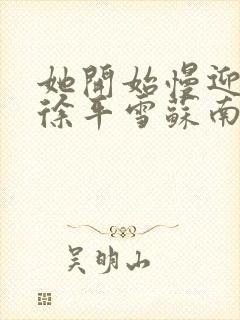 她開始慢迎
徐平雪蘇南
吴明山